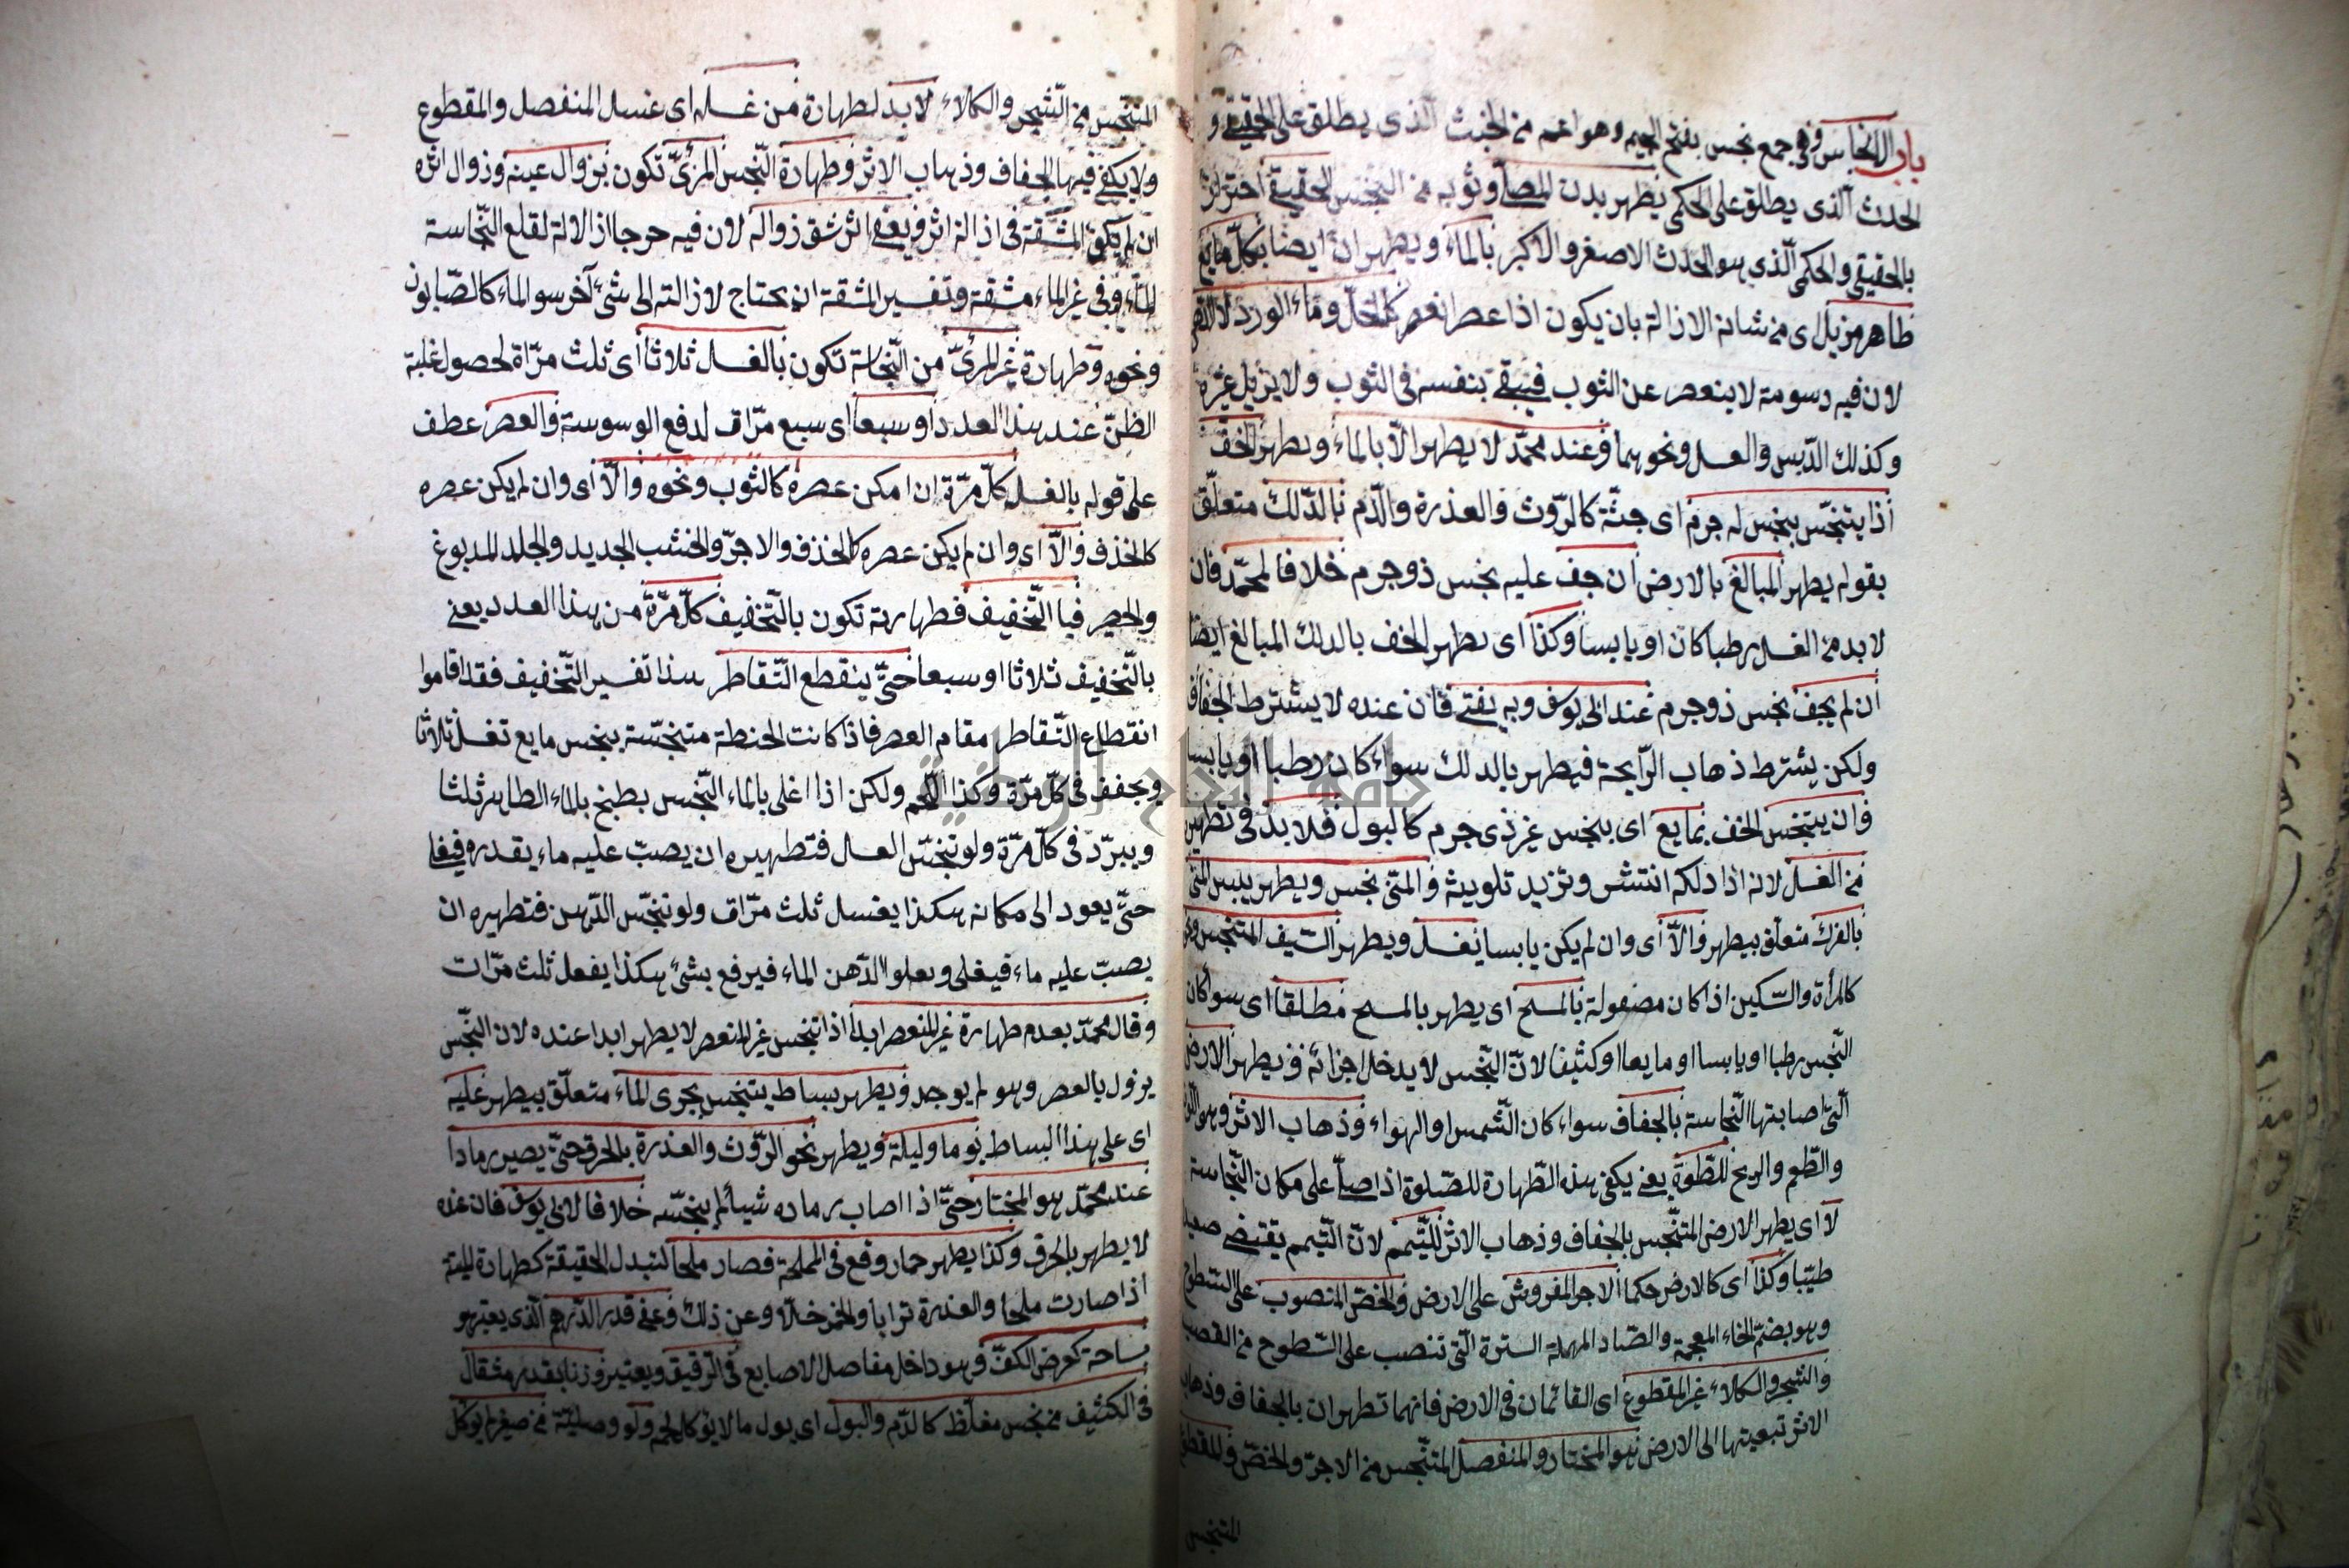 باب الانجاس وهي جمع نجس بفتح الجيم وهو اعم من الخبث الذى يطلق على الحقيقى و
الحدث الذى يطلق على الحكمى يطهر بدن المصلى وثوبه من النجس الحقيقى احترز
بالحقيقى والحكمى الذى هو الحدث الاصغر والاكبر بالماء ويطهران ايضا بكل مايع
طاهر مزيل اى من شانه الازالة بان يكون اذا عصر انعصر كالخل وماء الورد لا الدهن
لان فيه دسومة لا ينعصر عن الثوب فيبقى بنفسه فى الثوب ولا يزيل غيره
وكذلك الدبس والعسل ونحوهما وعند محمد لا يطهر الا بالماء ويطهر الخف
اذا يتنجس بنجس له جرم اى جثة كالروث والعذرة والدم بالدلك متعلق
بقوله يطهر المبالغ بالارض ان جف عليه نجس ذو جرم خلافا لمحمد فان
لا بد من الغسل رطبا كان او يابسا وكذا اى يطهر الخف بالدلك المبالغ ايضا
ان لم يجف نجس ذو جرم عند ابى يوسف وبه يفتى فان عنده لا يشترط الجفاف
ولكن يشترط ذهاب الرايحة فيطهر بالدلك سواء كان رطبا او يابسا
وان يتنجس الخف بمايع اى بنجس غير ذى جرم كالبول فلا بد فى تطهير
من الغسل لانه اذا دلكه انتشر وتزيد تلويثه والمنى نجس ويطهر يبس المنى
بالفرك متعلق بيطهر والا اى وان لم يكن يابسا يغسل ويطهر السيف المتنجس
كالمرأة والسكين اذا كان مصقولة بالمسح اى يطهر بالمسح مطلقا اى سواكان
النجس رطبا او يابسا او مايعا او كثيفا لان النجس لا يدخل اجزائه ويطهر الارض
التى اصابتها النجاسة بالجفاف سواء كان الشمس او الهواء وذهاب الاثر وهو اللون
والطعم والريح للصلوة يعنى يكفى هذه الطهارة للصلوة اذا صلى على مكان النجاسة
لا اى يطهر الارض المتنجس بالجفاف وذهاب الاثر للتيمم لان التيمم يقتضى صعيد
طيبا وكذا اى كالارض حكما الاجر المفروش على الارض والخص المنصوب على السطوح
وهو بضم الخاء المعجمة والصاد المهملة السترة التى تنصب على السطوح من القصب
والشجر والكلاء غير المقطوع اى القائمان فى الارض فانهما تطهران بالجفاف وذهاب
الاثر تبعيتها الى الارض هو المختار والمنفصل المتنجس من الاجر والخص والمقطوع
المتنجس
المتنجس من الشجر والكلاء لا بد لطهارة من غسله اى غسل المنفصل والمقطوع
ولا يكفى فيها الجفاف وذهاب الاثر وطهارة النجس المرئى تكون بزوال عينه وزوال اثره
ان لم يكن المشقة فى ازالة اثر ويعفى اثر شق زواله لان فيه حرجا اذ الالة لقلع النجاسة
الماء وفى غير الماء مشقة وتفسير المشقة ان يحتاج لازالته الى شئ آخر سوا الماء كالصابون
ونحوه وطهارة غير المرئى من النجاسة تكون بالغسل ثلاثا اى ثلث مراة لحصول غلبة
الظن عند هذا العدد او سبعا اى سبع مرات لدفع الوسوسة والعصر عطف
على قوله بالغسل كل مرة ان امكن عصره كالثوب ونحوه والا اى وان لم يكن عصره
كالخذف والا اى وان لم يكن عصره كالخذف والاجر والخشب الجديد والجلد المدبوغ
والحصير فبا التخفيف فطهارته تكون بالتخفيف كل مرة من هذا العدد يعنى
بالتخفيف ثلاثا او سبعا حتى ينقطع التقاطر هذا تفسير التخفيف فقد اقاموا
انقطاع التقاطر مقام العصر فاذا كانت الحنطة متنجسة بنجس مايع تغسل ثلاثا
ويجفف فى كل مرة وكذا اللحم ولكن اذا اغلى بالماء النجس يطبخ بالماء الطاهر ثلثا
ويبرد فى كل مرة ولو تنجس العسل فتطهيره ان يصب عليه ماء بقدره فيغلى
حتى يعود الى مكانه هكذا يغسل ثلث مرات ولو تنجس الدهن فتطهيره ان
يصب عليه ماء فيغلى ويعلوا الدهن الماء فيرفع بشئ هكذا يفعل ثلث مرات
وقال محمد بعدم طهارة غير المنعصر ابدا اذا تنجس غير المنعصر لا يطهر ابدا عنده لان النجس
يزول بالعصر وهو لم يوجد ويطهر بساط يتنجس بجرى الماء متعلق بيطهر عليه
اى على هذا البساط يوما وليلة ويطهر نحو الروث والعذرة بالحرق حتى يصير رمادا
عند محمد هو المختار حتى اذا اصاب رماده شيأ لم ينجسه خلافا لابى يوسف فان عنده
لا يطهر بالحرق وكذا يطهر حمار وقع فى المملحة فصار ملحا لتبدل الحقيقة كطهارة الميتة
اذا صارت ملحا والعذرة ترابا والخمر خلا وعن ذلك وعفى قدر الدرهم الذى يعتبر هو
مساحة كعرض الكف وهو داخل مفاصل الاصابع فى الرقيق ويعتبر وزنا بقدر مثقال
فى الكثيف من نجس مغلظ كالدم والبول اى بول ما لا يؤكل لحم ولو وصلية من صغير لم يوكل
جامعة النجاح الوطنية